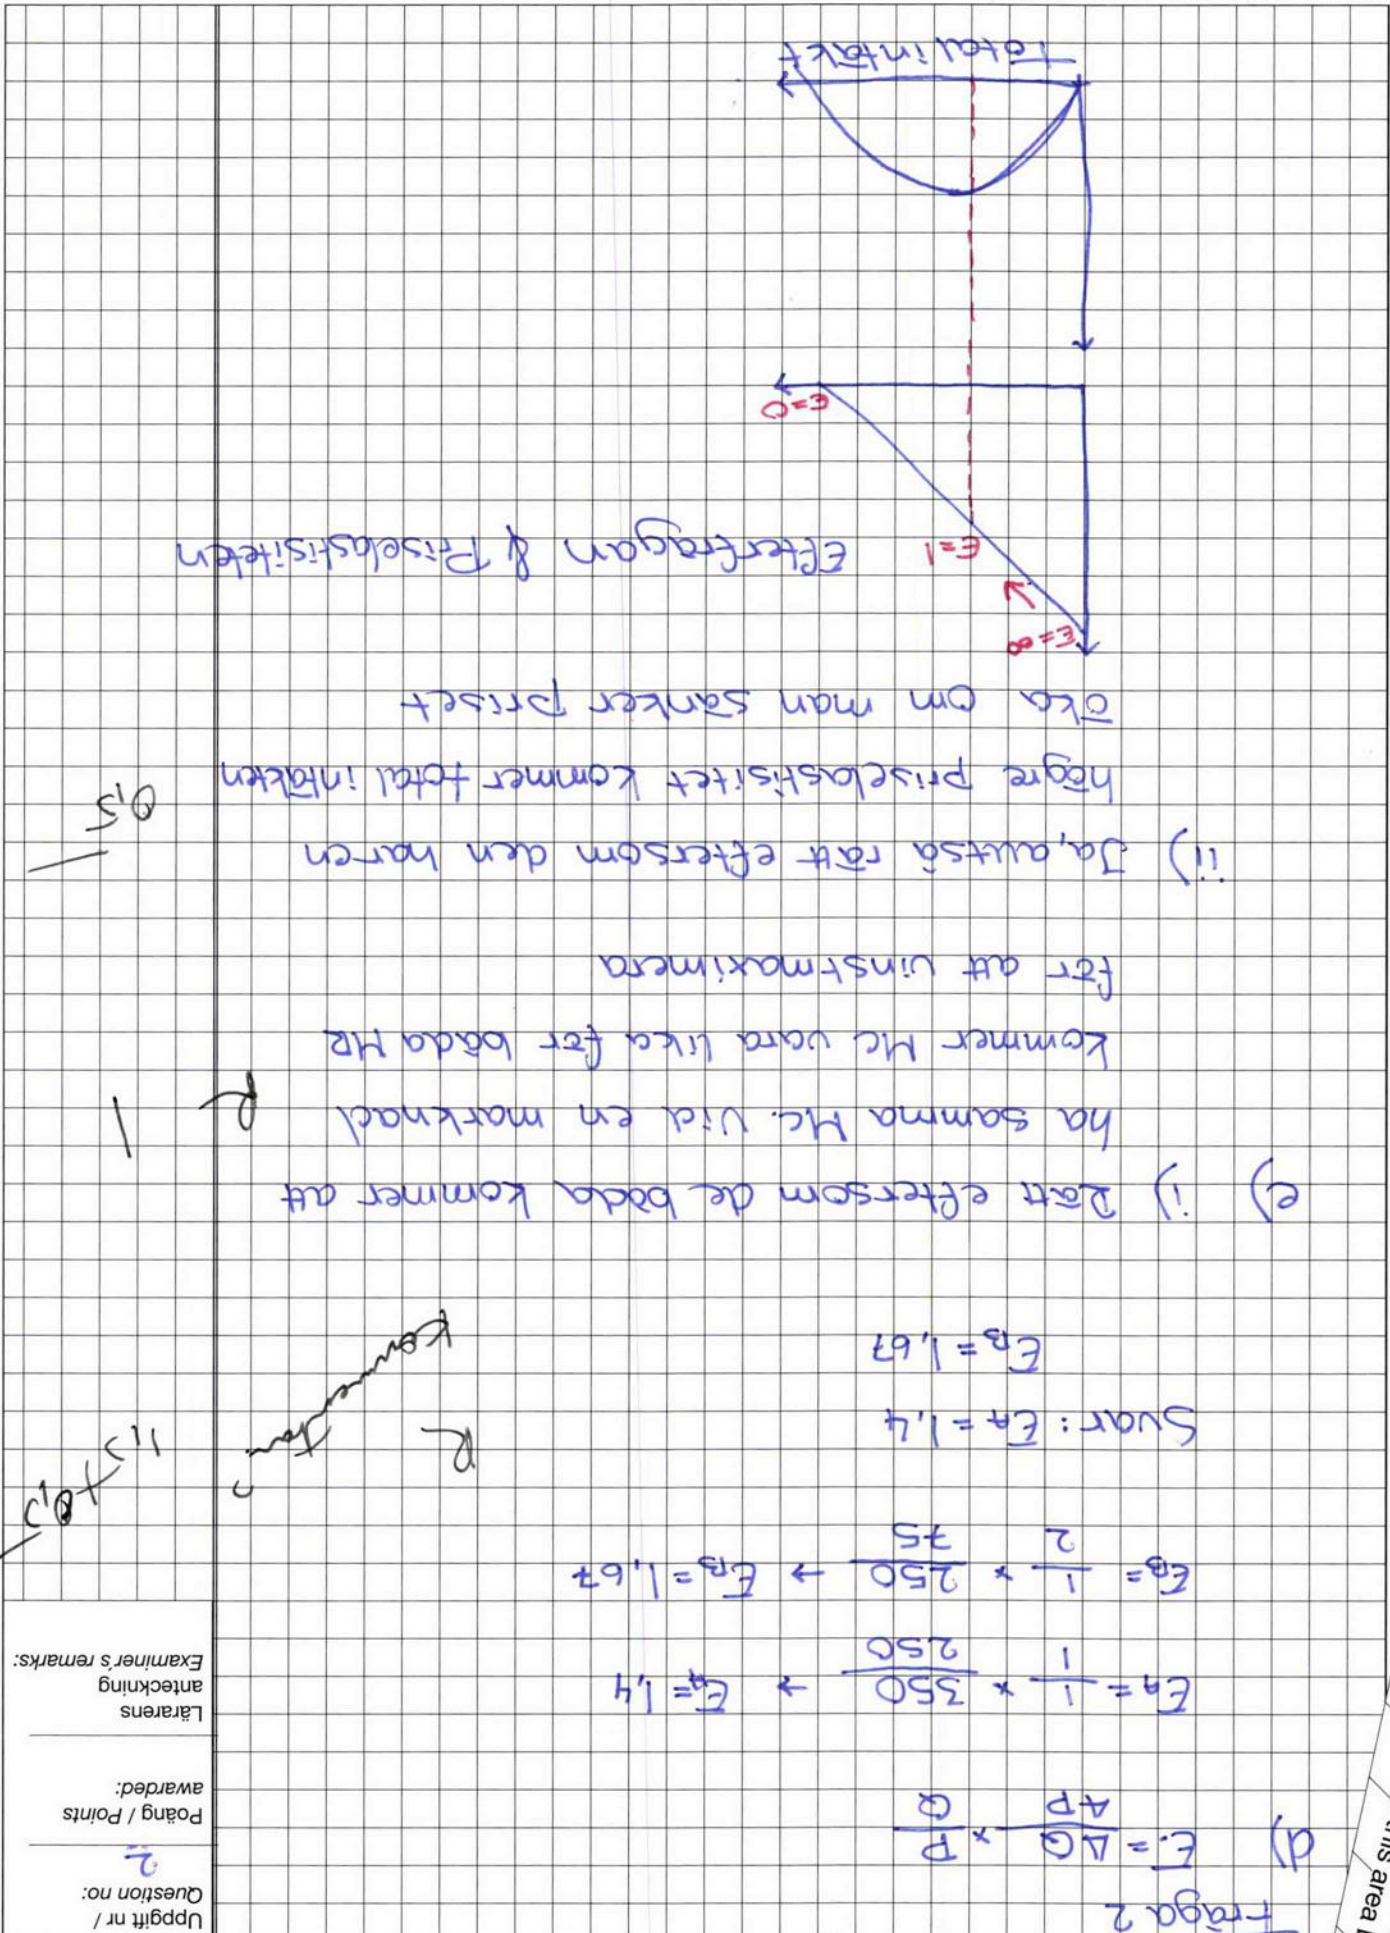 this area
Uppgift nr /
Question no:
2
Poäng / Points
awarded:
Lärarens
anteckning
Examiner's remarks:
Fråga 2
d) E = ΔQ/ΔP × P/Q
E_A = 1/1 × 350/250 → E_A = 1,4
E_B = 1/2 × 250/75 → E_B = 1,67
1,5 + 0,5
Svar: E_A = 1,4
R
E_B = 1,67
e) i) Rätt eftersom de båda kommer att
ha samma Mc. Vid en marknad
R 1
kommer Mc vara lika för båda MR
för att vinstmaximera
ii) Ja, alltså rätt eftersom den haren
0,5
högre priselastisitet kommer total intäkten
öka om man sänker priset
E=∞
E=1
Efterfrågan & Priselastisiteten
E=0
Total intäkt